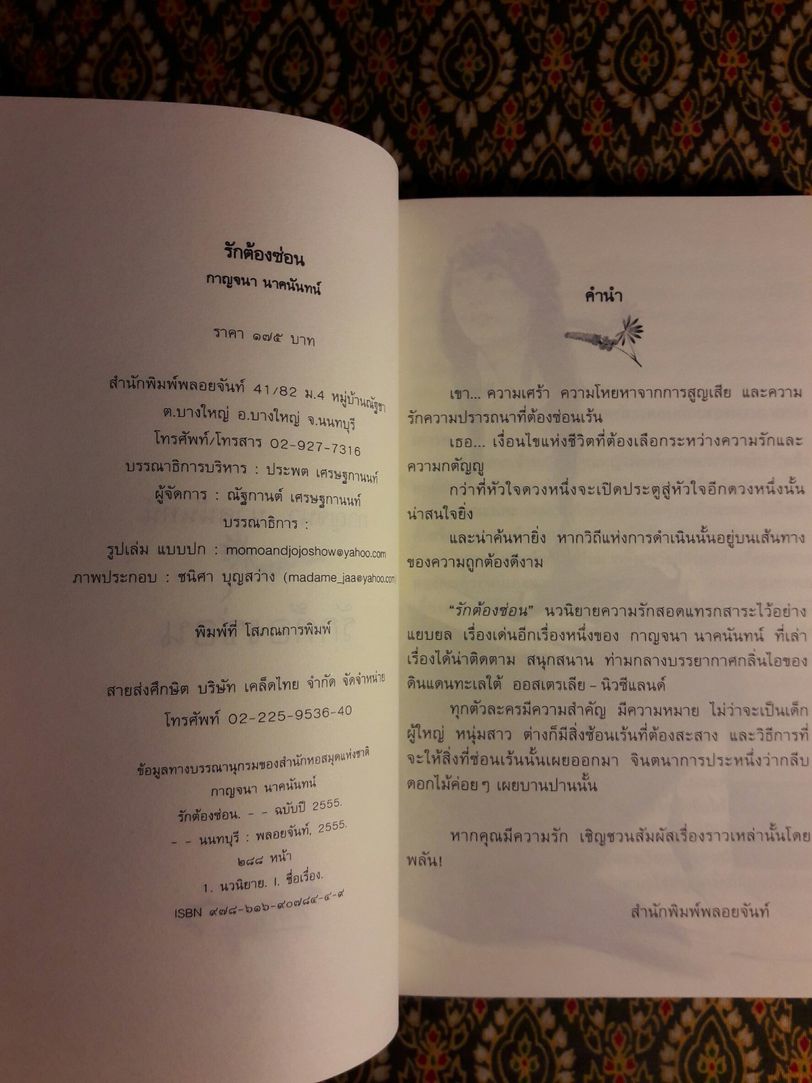 รักต้องซ่อน
กาญจนา นาคนันทน์
ราคา ๑๗๕ บาท
สำนักพิมพ์พลอยจันท์ 41/82 ม.4 หมู่บ้านณัฐชา
ต.บางใหญ่ อ.บางใหญ่ จ.นนทบุรี
โทรศัพท์/โทรสาร 02-927-7316
บรรณาธิการบริหาร : ประพต เศรษฐกานนท์
ผู้จัดการ : ณัฐกานต์ เศรษฐกานนท์
บรรณาธิการ :
รูปเล่ม แบบปก : momoandjojoshow@yahoo.com
ภาพประกอบ : ชนิศา บุญสว่าง (madame_jaa@yahoo.com
พิมพ์ที่ โสภณการพิมพ์
สายส่งศึกษิต บริษัท เคล็ดไทย จำกัด จัดจำหน่าย
โทรศัพท์ 02-225-9536-40
ข้อมูลทางบรรณานุกรมของสำนักหอสมุดแห่งชาติ
กาญจนา นาคนันทน์
รักต้องซ่อน. - - ฉบับปี 2555.
- - นนทบุรี : พลอยจันท์, 2555.
๒๘๘ หน้า
1. นวนิยาย. I. ชื่อเรื่อง.
ISBN ๙๗๘-๖๑๖-๙๐๗๘๔-๔-๙
คำนำ
เขา... ความเศร้า ความโหยหาจากการสูญเสีย และความ
รักความปรารถนาที่ต้องซ่อนเร้น
เธอ... เงื่อนไขแห่งชีวิตที่ต้องเลือกระหว่างความรักและ
ความกตัญญู
กว่าที่หัวใจดวงหนึ่งจะเปิดประตูสู่หัวใจอีกดวงหนึ่งนั้น
น่าสนใจยิ่ง
และน่าค้นหายิ่ง หากวิถีแห่งการดำเนินนั้นอยู่บนเส้นทาง
ของความถูกต้องดีงาม
"รักต้องซ่อน" นวนิยายความรักสอดแทรกสาระไว้อย่าง
แยบยล เรื่องเด่นอีกเรื่องหนึ่งของ กาญจนา นาคนันทน์ ที่เล่า
เรื่องได้น่าติดตาม สนุกสนาน ท่ามกลางบรรยากาศกลิ่นไอของ
ดินแดนทะเลใต้ ออสเตรเลีย – นิวซีแลนด์
ทุกตัวละครมีความสำคัญ มีความหมาย ไม่ว่าจะเป็นเด็ก
ผู้ใหญ่ หนุ่มสาว ต่างก็มีสิ่งซ่อนเร้นที่ต้องสะสาง และวิธีการที่
จะให้สิ่งที่ซ่อนเร้นนั้นเผยออกมา จินตนาการประหนึ่งว่ากลีบ
ดอกไม้ค่อยๆ เผยบานปานนั้น
หากคุณมีความรัก เชิญชวนสัมผัสเรื่องราวเหล่านั้นโดย
พลัน!
สำนักพิมพ์พลอยจันท์